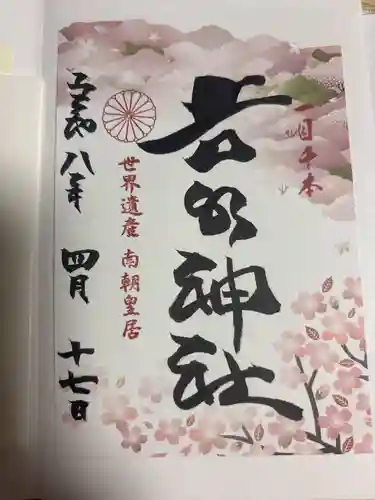 一目千本
吉水神社
世界遺産 南朝皇居
令和八年 四月 十七日